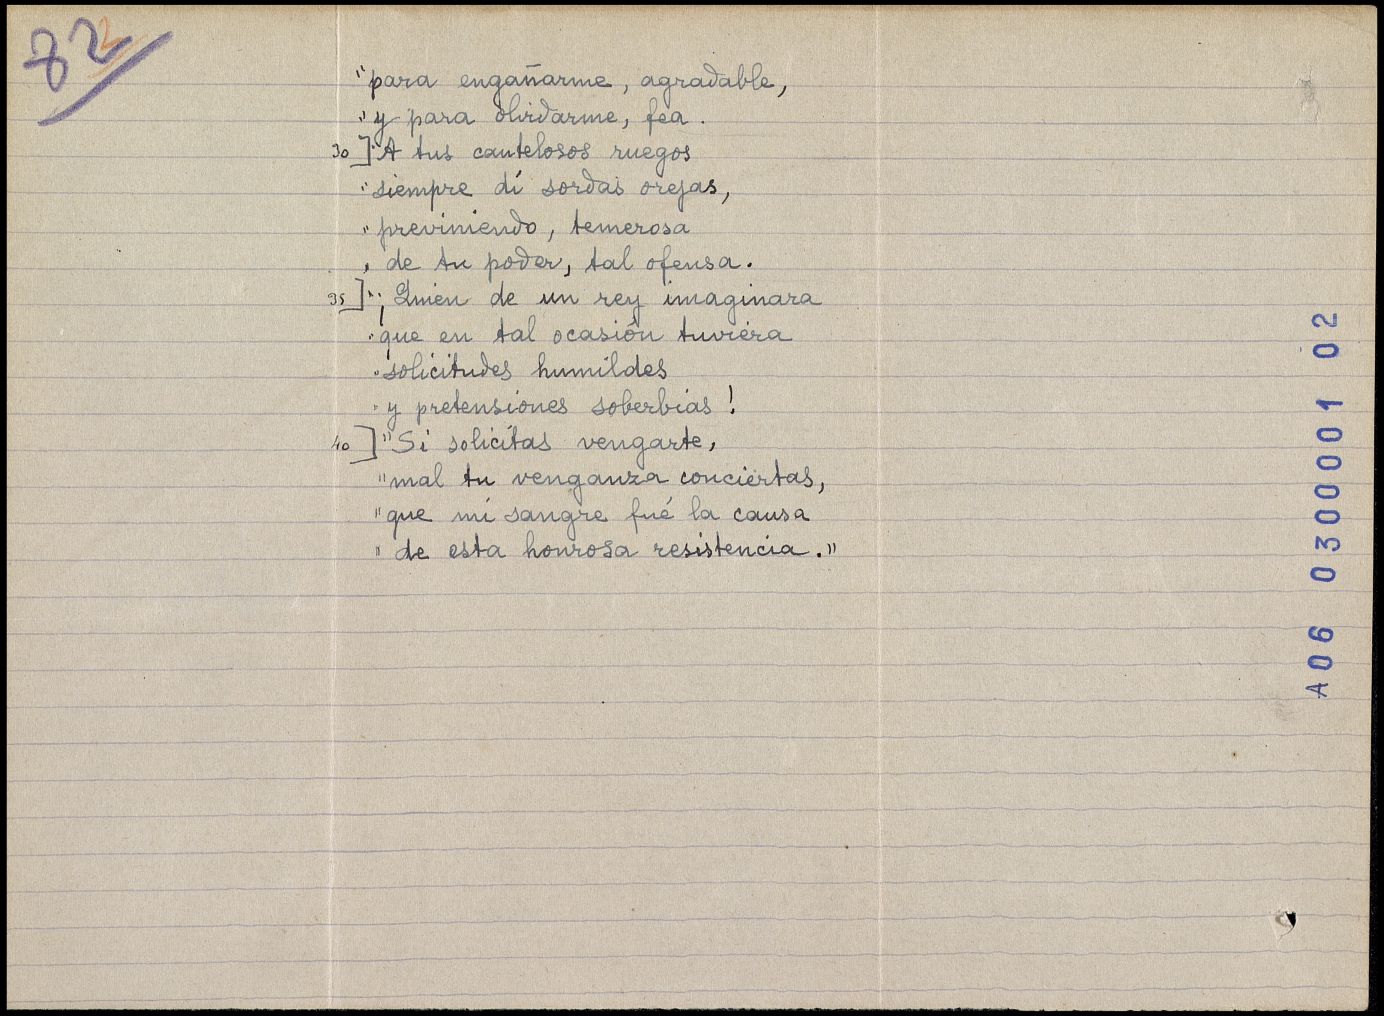 82 2
"para engañarme, agradable,
"y para olvidarme, fea.
30] "A tus cautelosos ruegos
"siempre dí sordas orejas,
"previniendo, temerosa
" de tu poder, tal ofensa.
35] "¡Quien de un rey imaginara
"que en tal ocasión tuviera
"solicitudes humildes
"y pretensiones soberbias!
40] "Si solicitas vengarte,
"mal tu venganza conciertas,
"que mi sangre fué la causa
" de esta honrosa resistencia."
A06 0300001 02